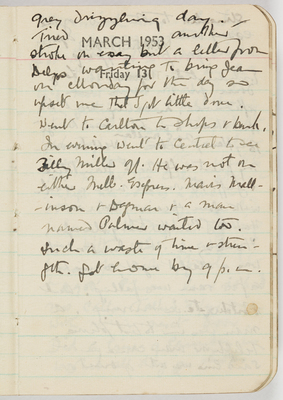 grey drizzling day.
Tired another
MARCH 1953
stroke on way but a letter from
Friday 13
Delys wanting to bring Jean
on Monday for the day so
upset me that I got little done.
Went to Carlton to shops & bank.
In evening went to Central to see
Billy Miller off. He was not on
either Melb. Express. Mavis Mall-
-inson & Dagmar & a man
named Palmer waited too.
Such a waste of time & stren-
gth. Got home by 9 p.m.